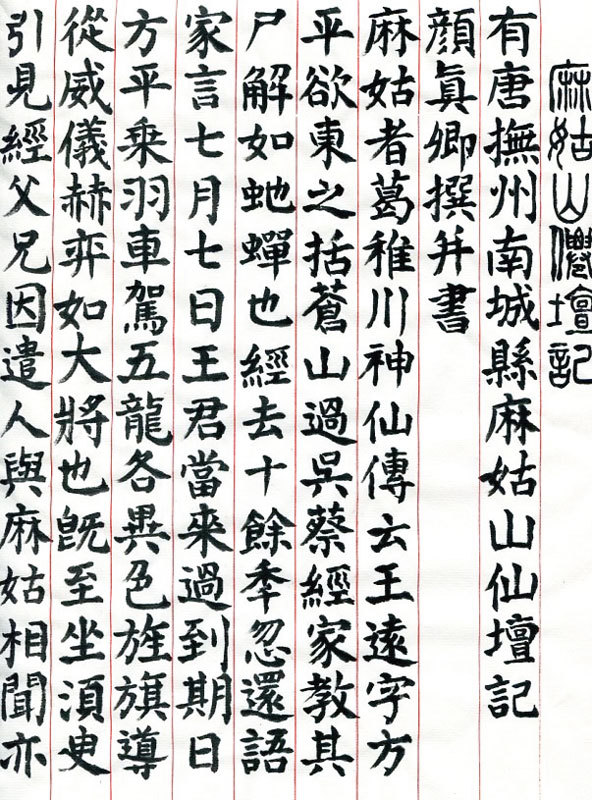 麻姑山僊壇記
有唐撫州南城縣麻姑山仙壇記
顔真卿撰并書
麻姑者葛稚川神仙傳云王遠字方
平欲東之括蒼山過吳蔡經家教其
尸解如虵蟬也經去十餘季忽還語
家言七月七日王君當來過到期日
方平乗羽車駕五龍各異色旌旗導
從威儀赫弈如大將也旣至坐湏臾
引見經父兄因遣人與麻姑相聞亦